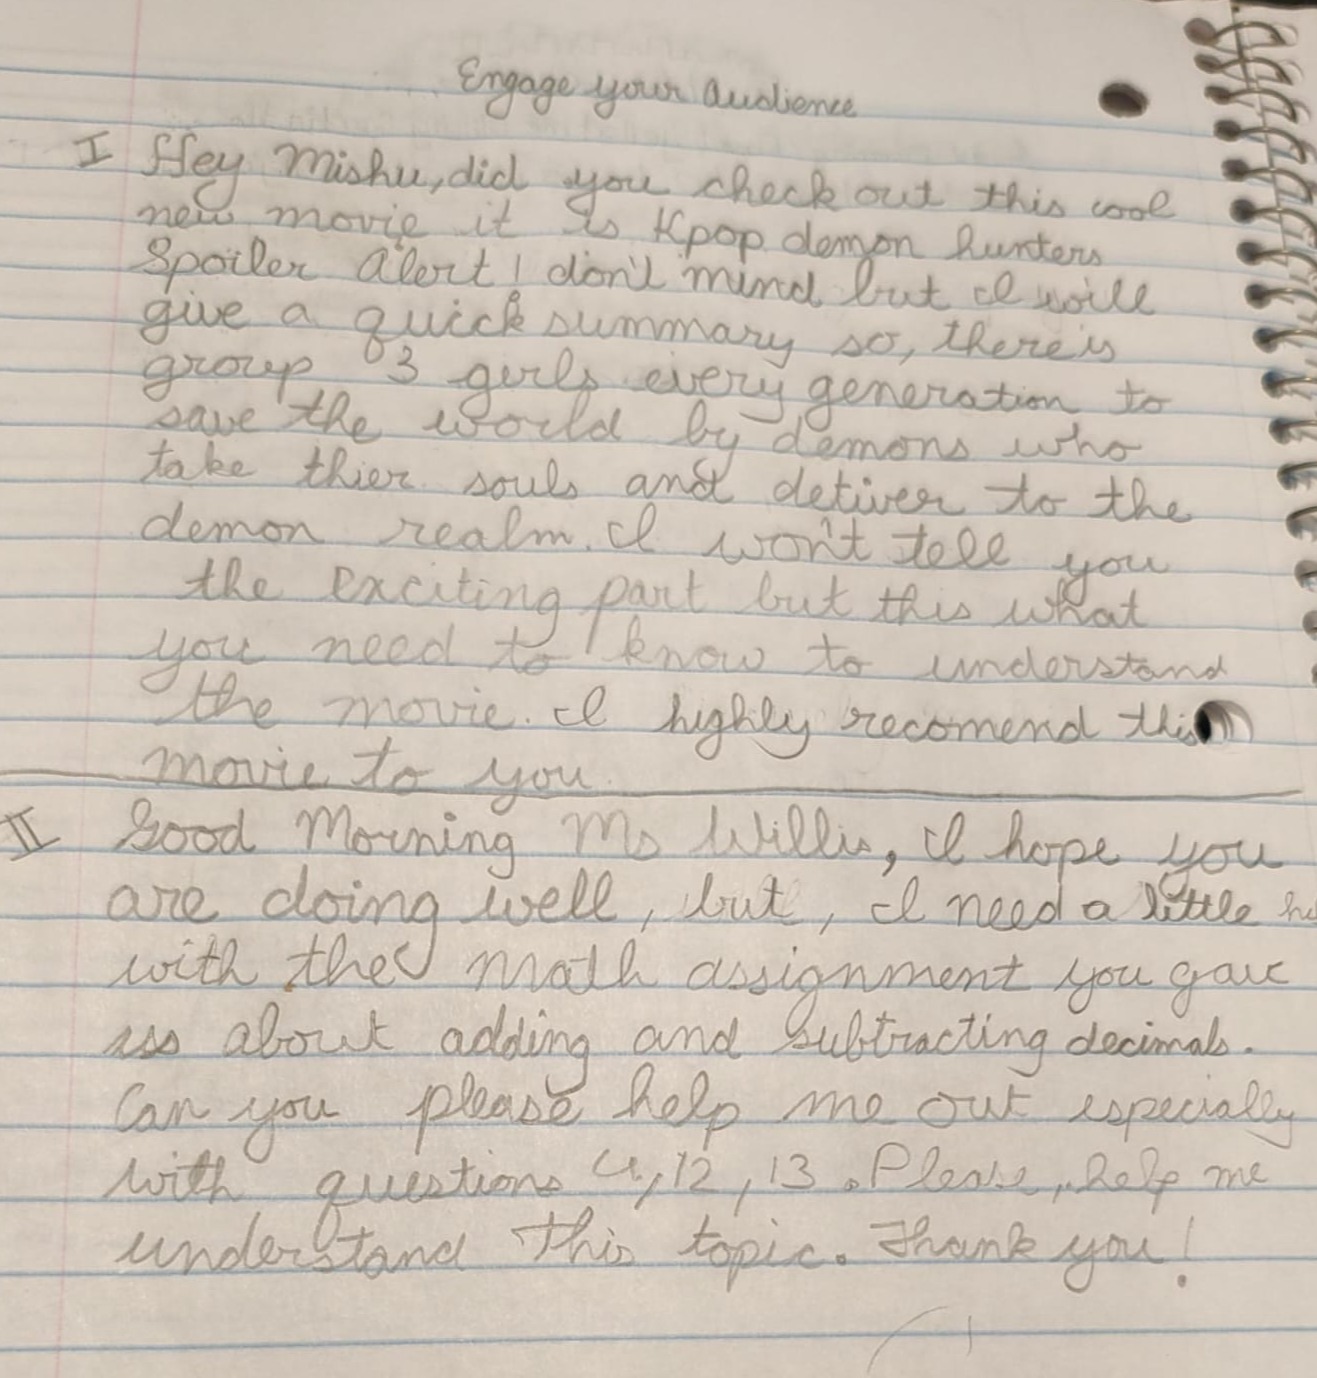 Engage your Audience
I Hey Mishu, did you check out this cool
new movie it is Kpop demon hunters
Spoiler Alert! don't mind but I will
give a quick summary so, there is
group 3 girls every generation to
save the world by demons who
take thier souls and detiver to the
demon realm. I won't tell you
the exciting part but this what
you need to know to understand
the movie. I highly recomend this
movie to you.
II Good Morning Ms Willis, I hope you
are doing well, but, I need a little
with the math assignment you gave
us about adding and subtracting decimals.
Can you please help me out especially
with questions 4, 12, 13. Please, help me
understand this topic. Thank you!